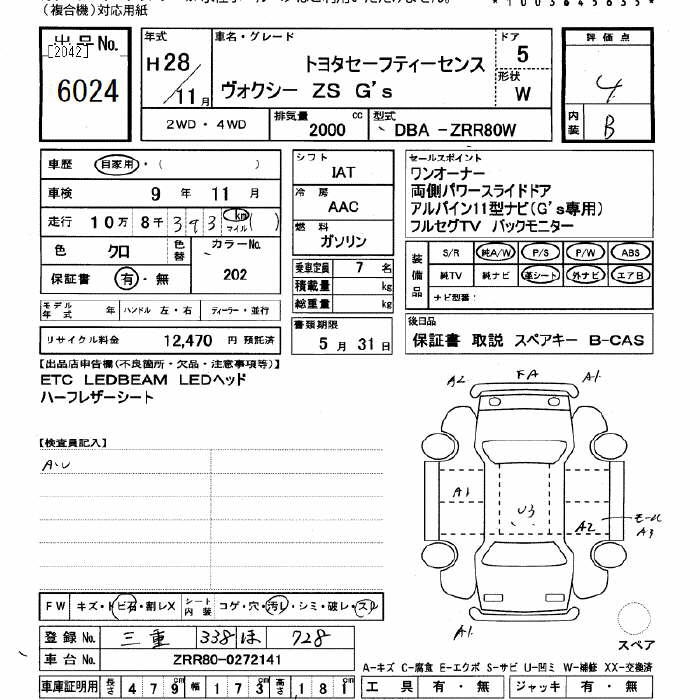 (複合機)対応用紙
出品No.
[2042]
6024
年式 車名・グレード ドア 評価点
H28/11月
トヨタセーフティーセンス 5
形状
ヴォクシー ZS G's W
4
内装 B
2WD・4WD 排気量 2000 cc 型式 DBA -ZRR80W
車歴 自家用・( )
車検 9 年 11 月
走行 10万 8千 393 km マイル ( )
色 クロ 色替 カラーNo.
保証書 有・無 202
モデル年式 年 ハンドル 左・右 ディーラー・並行
リサイクル料金 12,470 円 預託済
シフト
IAT
冷房
AAC
燃料
ガソリン
乗車定員 7 名
積載量 kg
総重量 kg
書類期限
5 月 31 日
セールスポイント
ワンオーナー
両側パワースライドドア
アルパイン11型ナビ(G's専用)
フルセグTV バックモニター
装備品
S/R 純A/W P/S P/W ABS
純TV 純ナビ 革シート 外ナビ エアB
ナビ型番:
後日品
保証書 取説 スペアキー B-CAS
【出品店申告欄(不良箇所・欠品・注意事項等)】
ETC LEDBEAM LEDヘッド
ハーフレザーシート
【検査員記入】
A・U
A2 FA A1
A1
U3
A2
モール
A3
A1
スペア
FW キズ・トビ石・割レX シート内装 コゲ・穴・汚レ・シミ・破レ・スレ
登録No. 三重 338 ほ 728
車台No. ZRR80-0272141
A-キズ C-腐食 E-エクボ S-サビ U-凹ミ W-補修 XX-交換済
車庫証明用 長さ 479 cm 幅 173 cm 高さ 181 cm 工具 有・無 ジャッキ 有・無